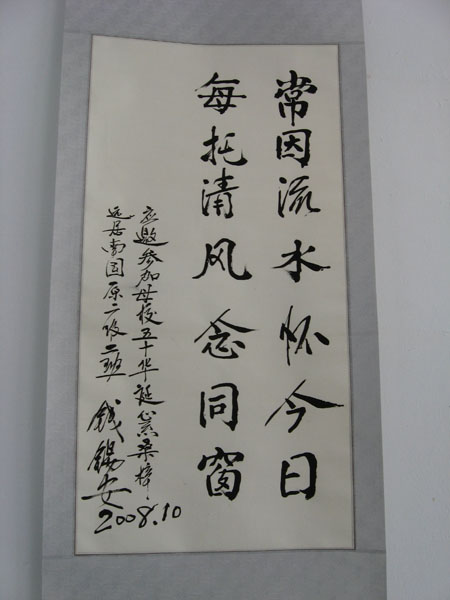 常因流水怀今日
每托清风念同窗
应邀参加母校五十华诞心系桑梓
远居南国原二级二班 钱锡安
2008.10